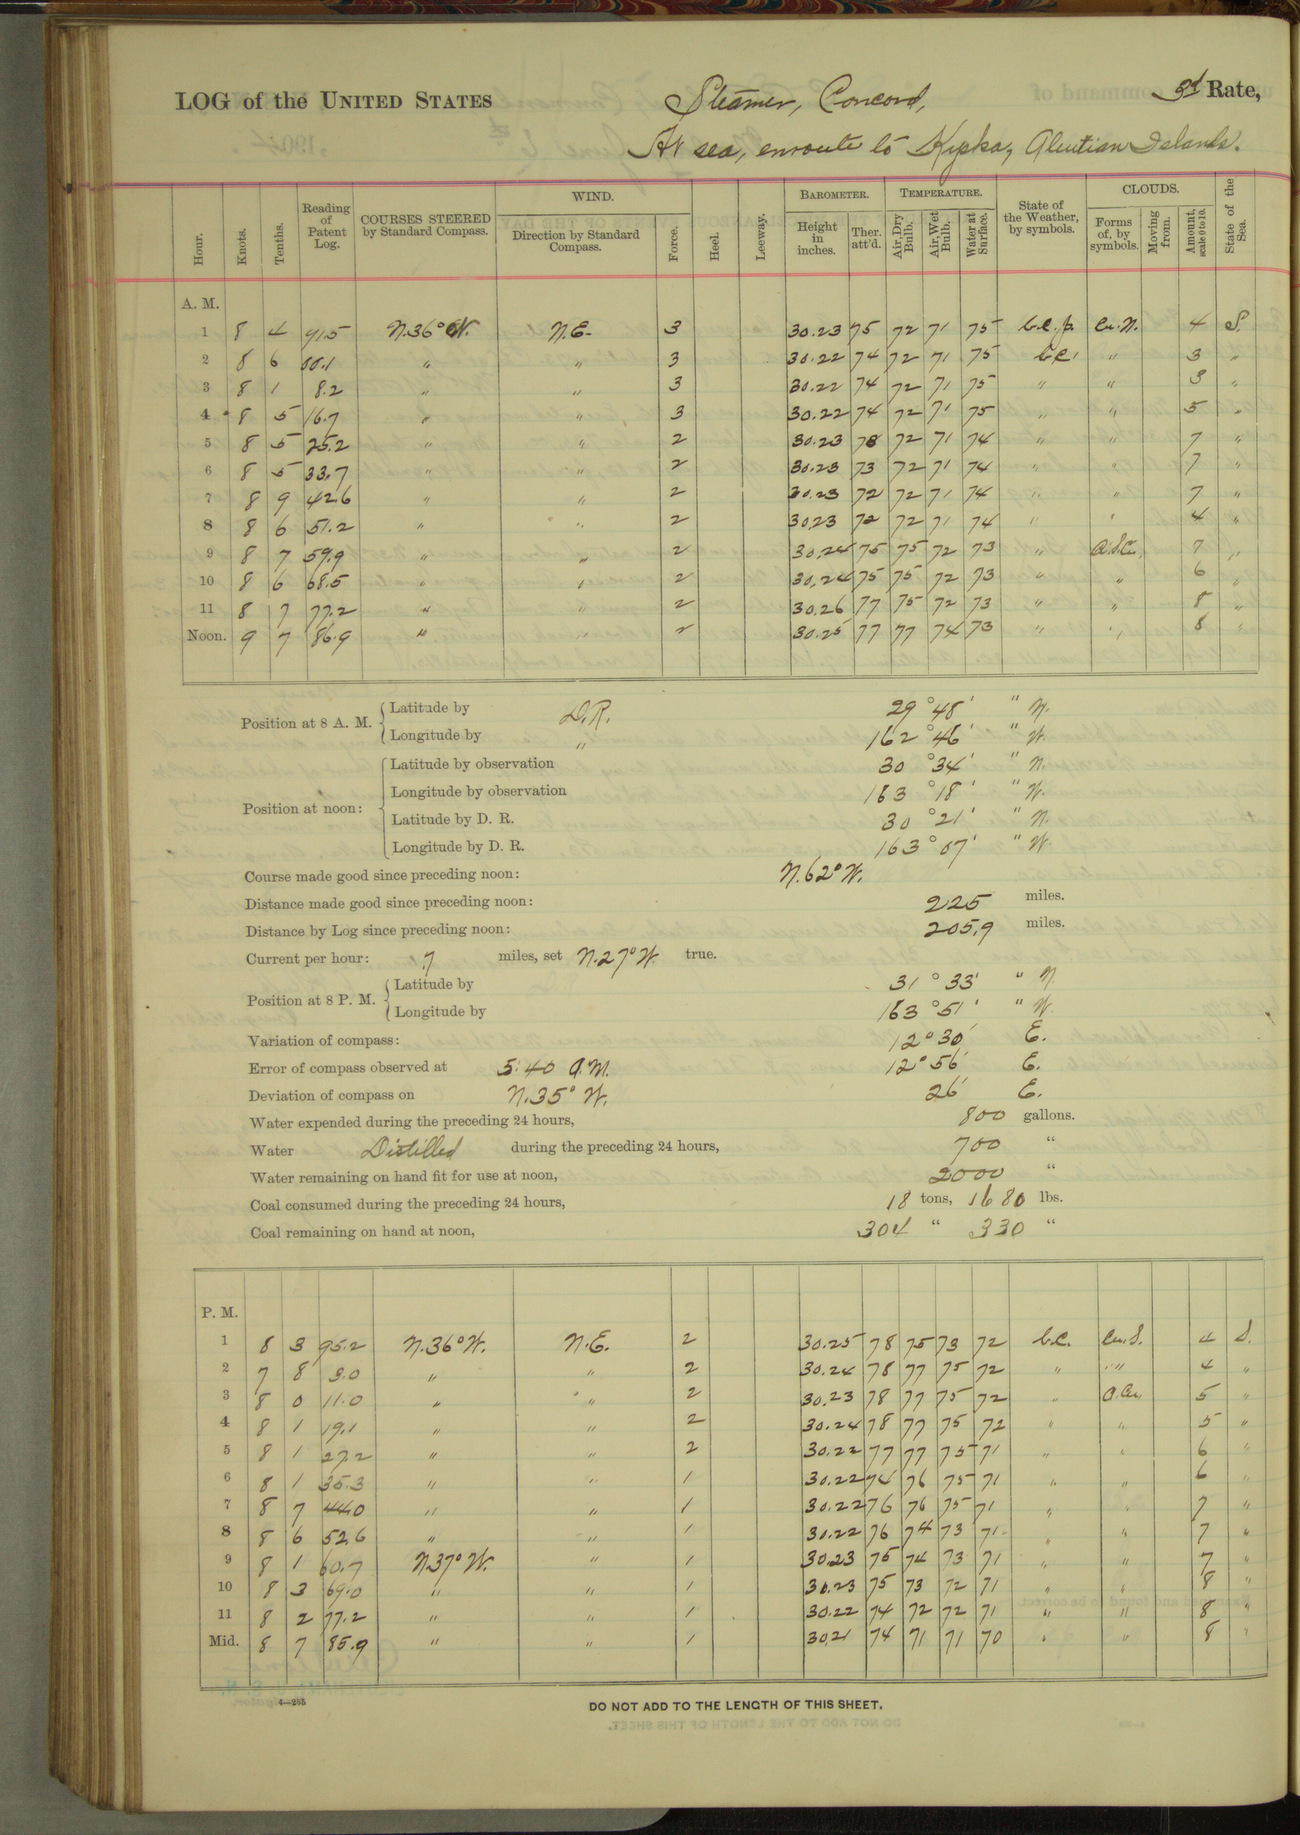 LOG of the UNITED STATES Steamer, Concord, 3d Rate,
At sea, enroute to Kyska, Aleutian Islands.
Hour. Knots. Tenths. Reading of Patent Log. COURSES STEERED by Standard Compass. WIND. Direction by Standard Compass. Force. Heel. Leeway. BAROMETER. Height in inches. Ther. att'd. TEMPERATURE. Air, Dry Bulb. Air, Wet Bulb. Water at Surface. State of the Weather, by symbols. CLOUDS. Forms of, by symbols. Moving from. Amount, scale 0 to 10. State of the Sea.
A. M.
1 8 4 91.5 N.36°W. N.E. 3 30.23 75 72 71 75 b.c.p. Cu.N. 4 S.
2 8 6 00.1 " " 3 30.22 74 72 71 75 b.c. " 3 "
3 8 1 8.2 " " 3 30.22 74 72 71 75 " " 3 "
4 8 5 16.7 " " 3 30.22 74 72 71 75 " " 5 "
5 8 5 25.2 " " 2 30.23 73 72 71 74 " " 7 "
6 8 5 33.7 " " 2 30.23 73 72 71 74 " " 7 "
7 8 9 42.6 " " 2 30.23 72 72 71 74 " " 7 "
8 8 6 51.2 " " 2 30.23 72 72 71 74 " " 4 "
9 8 7 59.9 " " 2 30.24 75 75 72 73 " 7 "
10 8 6 68.5 " " 2 30.24 75 75 72 73 " " 6 "
11 8 7 77.2 " " 2 30.26 77 75 72 73 " " 8 "
Noon. 9 7 86.9 " " 2 30.25 77 77 74 73 " " 8 "
Position at 8 A. M. Latitude by D.R. 29 ° 48 ' " N.
Longitude by " 162 ° 46 ' " W.
Position at noon: Latitude by observation 30 ° 34 ' " N.
Longitude by observation 163 ° 18 ' " W.
Latitude by D. R. 30 ° 21 ' " N.
Longitude by D. R. 163 ° 07 ' " W.
Course made good since preceding noon: N.62°W.
Distance made good since preceding noon: 225 miles.
Distance by Log since preceding noon: 205.9 miles.
Current per hour: .7 miles, set N.27°W. true.
Position at 8 P. M. Latitude by 31 ° 33 ' " N.
Longitude by 163 ° 51 ' " W.
Variation of compass: 12° 30' E.
Error of compass observed at 5:40 A.M. 12° 56' E.
Deviation of compass on N.35° W. 26' E.
Water expended during the preceding 24 hours, 800 gallons.
Water Distilled during the preceding 24 hours, 700 "
Water remaining on hand fit for use at noon, 2000 "
Coal consumed during the preceding 24 hours, 18 tons, 1680 lbs.
Coal remaining on hand at noon, 304 " 330 "
P. M.
1 8 3 95.2 N.36°W. N.E. 2 30.25 78 75 73 72 b.c. Cu.S. 4 S.
2 7 8 3.0 " " 2 30.24 78 77 75 72 " " 4 "
3 8 0 11.0 " " 2 30.23 78 77 75 72 " A.Cu. 5 "
4 8 1 19.1 " " 2 30.24 78 77 75 72 " " 5 "
5 8 1 27.2 " " 2 30.22 77 77 75 71 " " 6 "
6 8 1 35.3 " " 1 30.22 74 76 75 71 " " 6 "
7 8 7 44.0 " " 1 30.22 76 76 75 71 " " 7 "
8 8 6 52.6 " " 1 30.22 76 74 73 71 " " 7 "
9 8 1 60.7 N.37°W. " 1 30.23 75 74 73 71 " " 7 "
10 8 3 69.0 " " 1 30.23 75 73 72 71 " " 8 "
11 8 2 77.2 " " 1 30.22 74 72 72 71 " " 8 "
Mid. 8 7 85.9 " " 1 30.21 74 71 71 70 " " 8 "
4—265
DO NOT ADD TO THE LENGTH OF THIS SHEET.